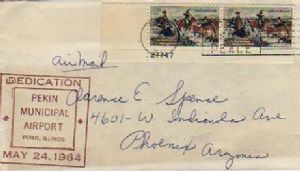 Air Mail
27747
DEDICATION
PEKIN
MUNICIPAL
AIRPORT
PEKIN, ILLINOIS
MAY 24, 1964
Clarence E. Spence
4601-W. Indianola Ave
Phoenix
Arizonia